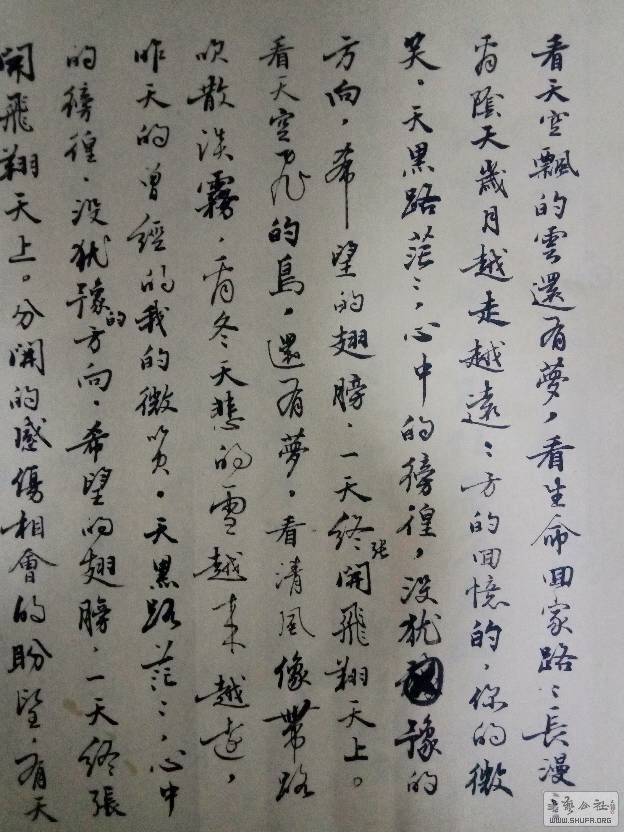 看天空飄的雲還有夢,看生命回家路〻長漫
看陰天歲月越走越遠〻方的回憶的,你的微
笑。天黑路茫〻,心中的徬徨,沒猶豫的
方向,希望的翅膀、一天終張開飛翔天上。
看天空飛的鳥,還有夢,看清風像帶路
吹散淡霧、看冬天悲的雪越来越遠,
昨天的曾經的我的微笑。天黑路茫〻,心中
的徬徨、沒猶豫的方向、希望的翅膀、一天終張
開飛翔天上。分開的感傷相會的盼望、有天
公社
WWW.SHUFA.ORG